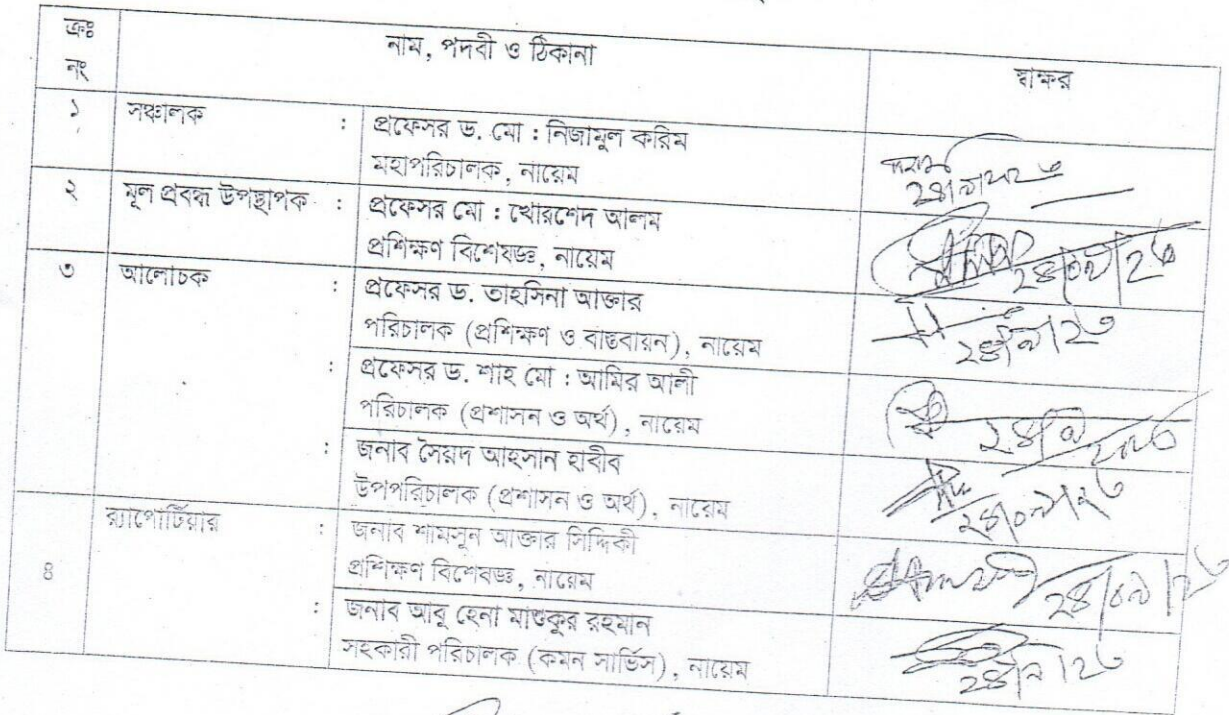 ক্রঃ নং
নাম, পদবী ও ঠিকানা
স্বাক্ষর
১ সঞ্চালক : প্রফেসর ড. মো : নিজামুল করিম
মহাপরিচালক, নায়েম
২ মূল প্রবন্ধ উপস্থাপক : প্রফেসর মো : খোরশেদ আলম
প্রশিক্ষণ বিশেষজ্ঞ, নায়েম
৩ আলোচক : প্রফেসর ড. তাহসিনা আক্তার
পরিচালক (প্রশিক্ষণ ও বাস্তবায়ন), নায়েম
: প্রফেসর ড. শাহ মো : আমির আলী
পরিচালক (প্রশাসন ও অর্থ), নায়েম
: জনাব সৈয়দ আহসান হাবীব
উপপরিচালক (প্রশাসন ও অর্থ), নায়েম
৪ র‍্যাপোর্টিয়ার : জনাব শামসুন আক্তার সিদ্দিকী
প্রশিক্ষণ বিশেষজ্ঞ, নায়েম
: জনাব আবু হেনা মাশুকুর রহমান
সহকারী পরিচালক (কমন সার্ভিস), নায়েম